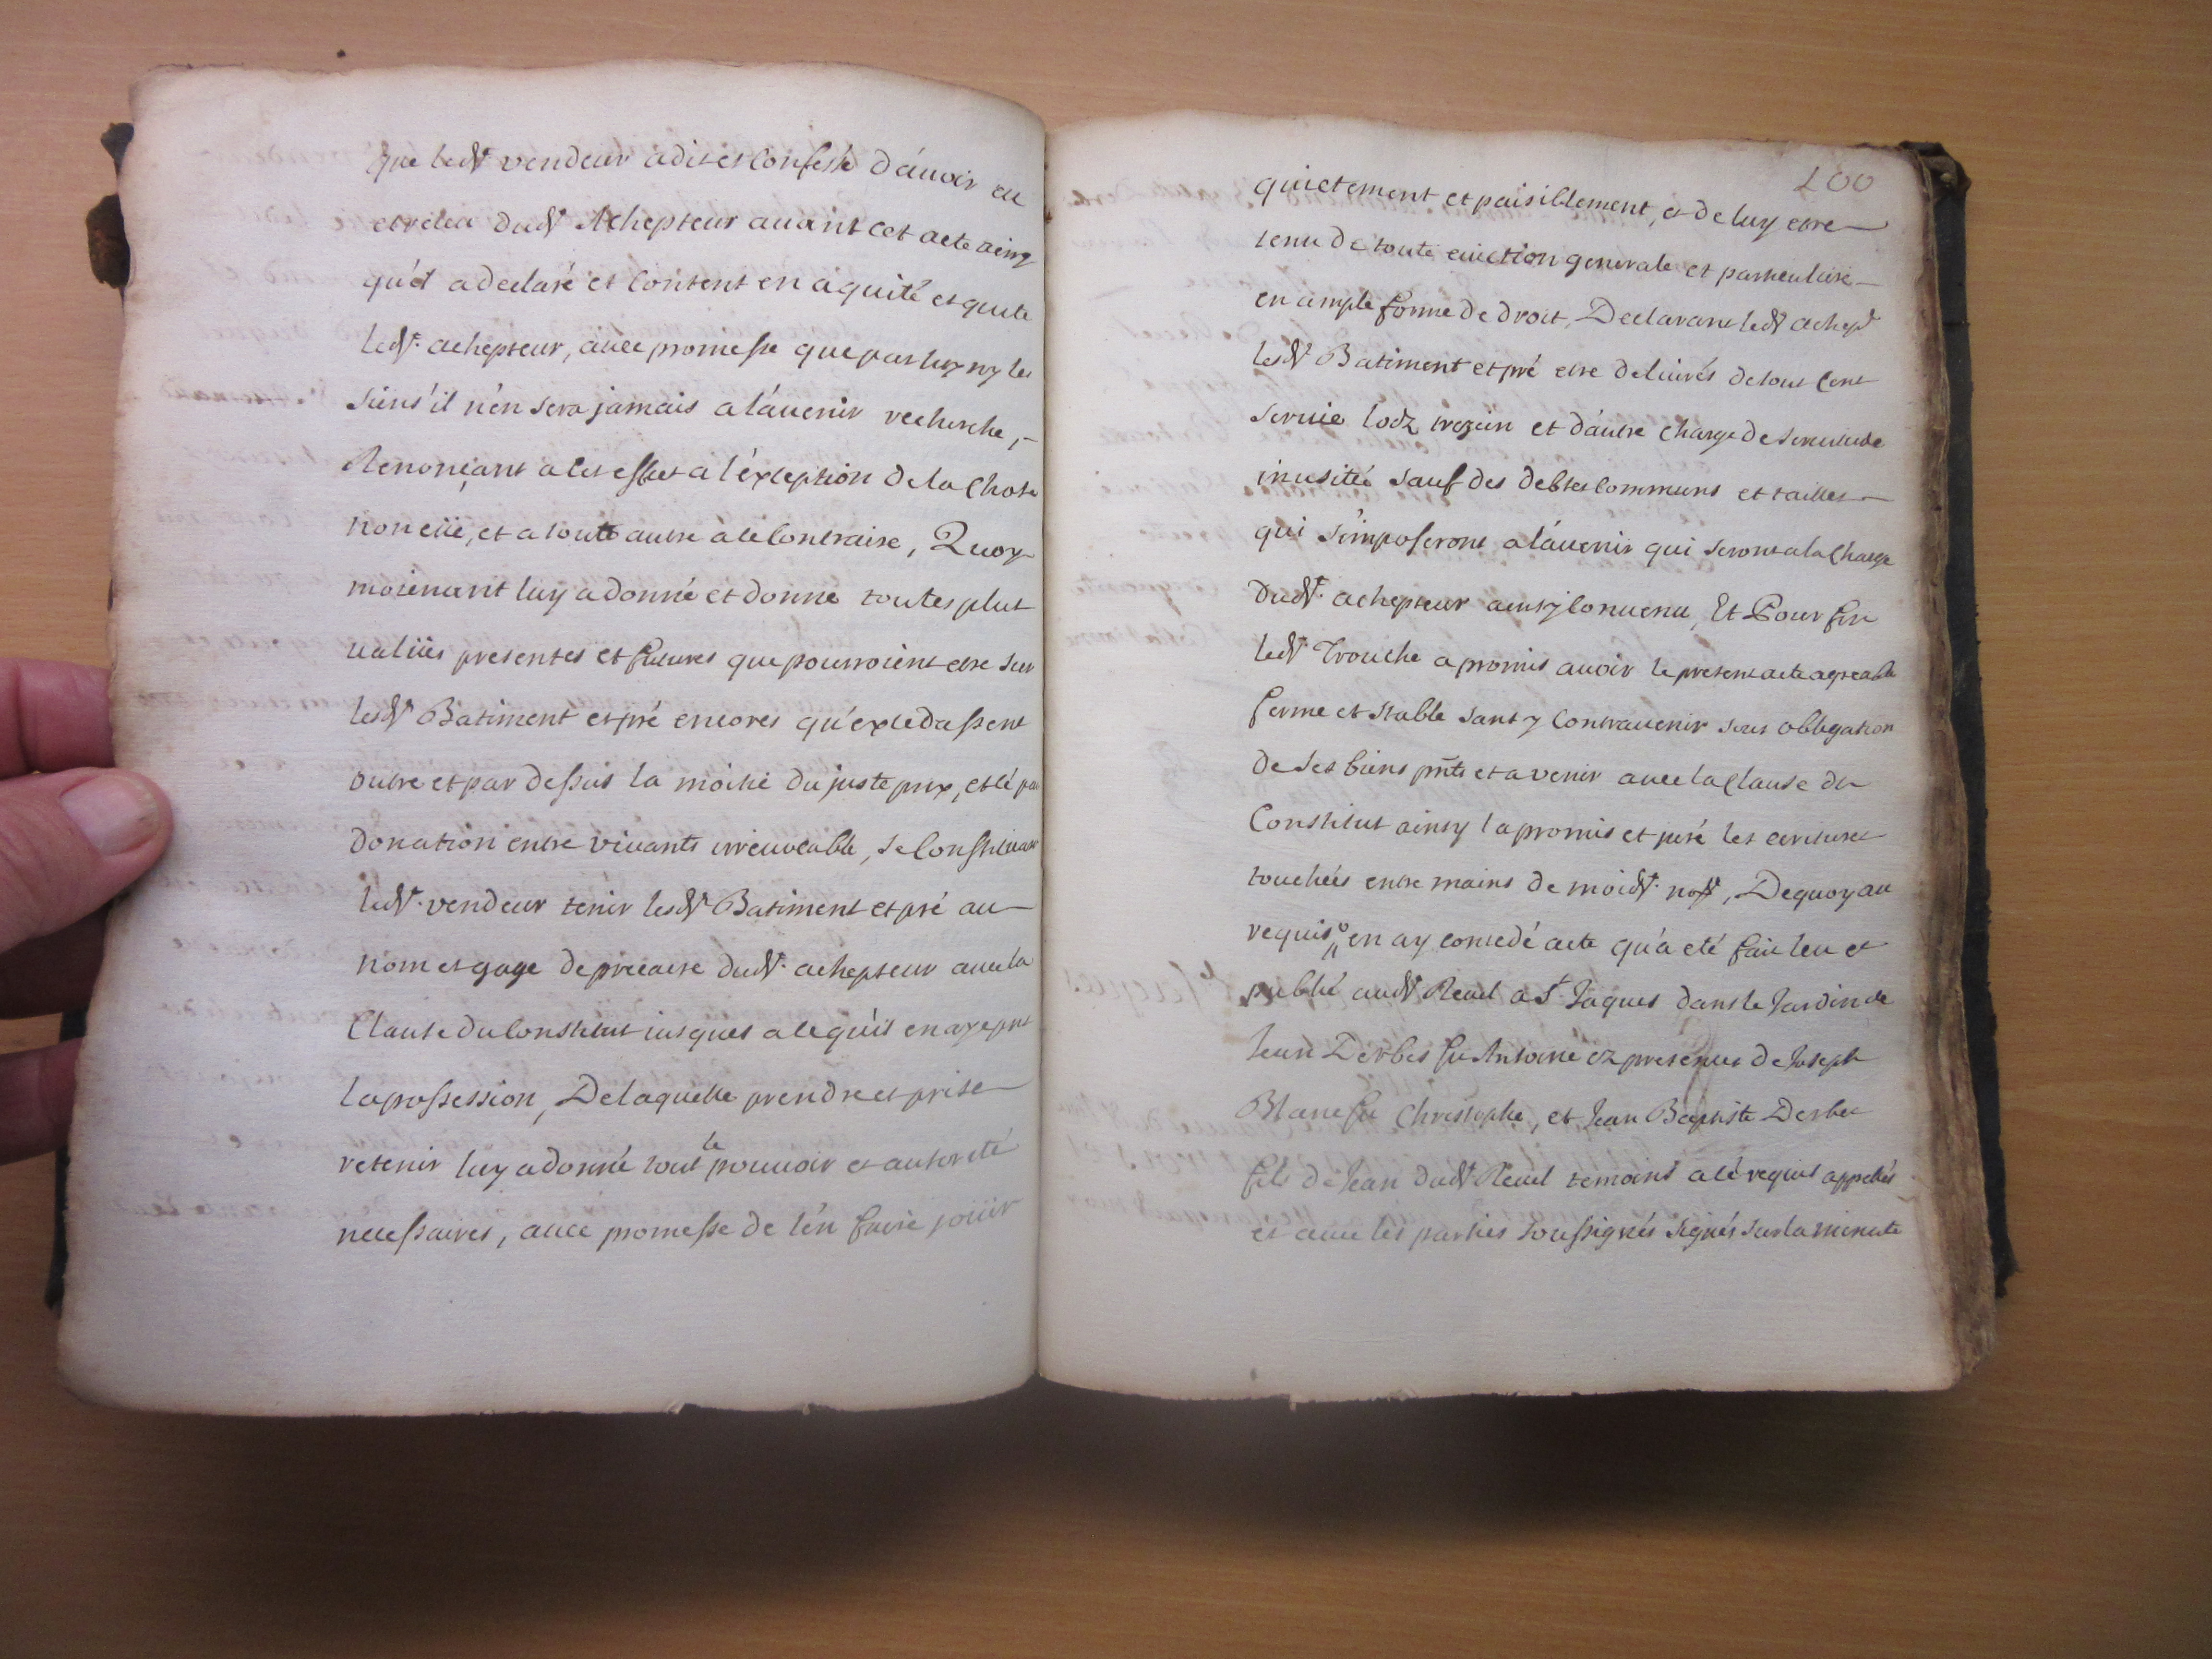 que led^t vendeur a dit et Confessé d'áuoir eu
et receu dud^t Achepteur auant cet acte ainsy
qu'il a declaré et Content en a quité et quite
led^t. achepteur, auec promesse que par luy ny les
siens il n'en sera jamais a l'áuenir recherché,
Renonçant a cet effect a l'éxception de la Chose
non eüe, et a toute autre a ce Contraire, Quoy
moienant luy a donné et donne toutes plus
ualües presentes et futures que pourroient etre sur
lesd^t Batiment et pré encores qu'excedassent
outre et par dessus la moitié du juste prix, et cé par
donation entre viuants irreuocable, se Constituant
led^t. vendeur tenir lesd^t Batiment et pré au
nom et gage de precaire dud^t. achepteur auec la
Clause du Constitut iusques a ce qu'il en aye pris
la possession, De laquelle prendre et prise
retenir luy a donné tout le pouuoir et autorité
necessaires, auec promesse de l'én faire joüir
100
quietement et paisiblement, et de luy etre
tenu de toute euiction generale et particuliere
en ample forme de droit, Declarant led^t achep^r
lesd^t Batiment et pré etre deliurés de tout Cens
seruice lodz trezain et d'áutre charge de seruitude
inusitée sauf des debtes Communs et tailles
qui s'imposeront a l'áuenir qui seront a la Charge
dud^t. achepteur ainsy Conuenu, Et Pour fin
led^t Trouche a promis auoir le present acte agreable
ferme et stable sans y Contrauenir sous obbligation
de ses biens pñts et a venir auec la Clause du
Constitut ainsy l'a promis et juré les ecritures
touchées entre mains de moid^t. no^re, De quoy au
requis en ay concedé acte qu'a eté fait leu et
publié aud^t Reuel a S^t. Jaques dans le Jardin de
Jean Derbes fu Antoine ez presence de Joseph
Blanc fu Christophe, et Jean Baptiste Derbes
fils de Jean dud^t Reuel temoins a cé requis appellés
et auec les parties soussignés signés sur la minute